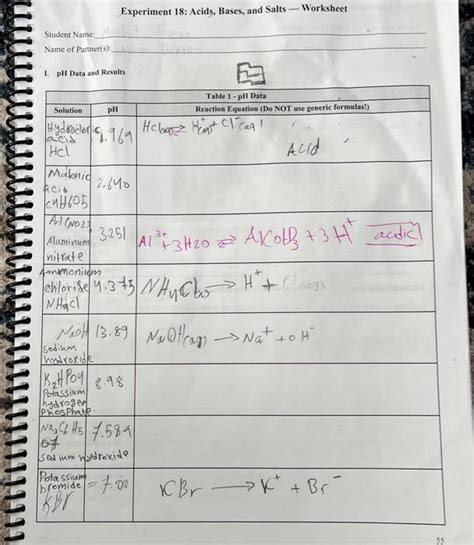 Experiment 18: Acids, Bases, and Salts — Worksheet
Student Name:
Name of Partner(s):
I. pH Data and Results
Table 1 - pH Data
Solution pH Reaction Equation (Do NOT use generic formulas!)
Hydrocloric
acid
Hcl
.969
Hcl(aq) ⇌ H+(aq) + Cl-(aq)
Acid
acid
C4H6O5
2.640
Al(NO3)3
Aluminum
nitrate
3.251
Al3+ + 3H2O ⇌ Al(OH)3 + 3H+ acidic
Ammonium
chloride
NH4cl
4.375
NH4Cl → H+ + Cl(aq)
NaOH
sodium
hydroxide
13.89
NaOH(aq) → Na+ + OH-
K2HPO4
Potassium
hydrogen
Phosphate
8.98
Na3C6H5
O7
sodium hydroxide
7.589
Potassium
bromide
KBr
= 7.00
KBr → K+ + Br-
55